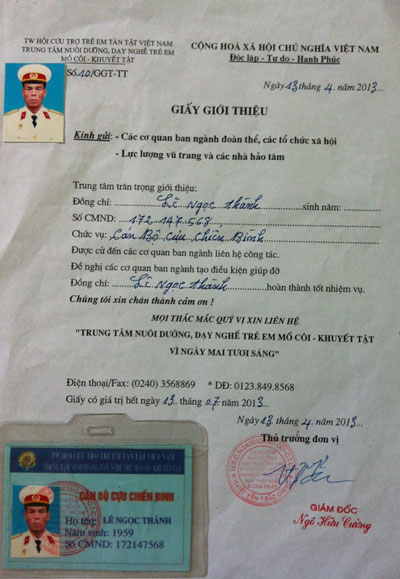 TW HỘI CỨU TRỢ TRẺ EM TÀN TẬT VIỆT NAM
TRUNG TÂM NUÔI DƯỠNG, DẠY NGHỀ TRẺ EM
MỒ CÔI - KHUYẾT TẬT
Số 10/GGT-TT
CỘNG HOÀ XÃ HỘI CHỦ NGHĨA VIỆT NAM
Độc lập - Tự do - Hạnh Phúc
Ngày 13 tháng 4 năm 2013
GIẤY GIỚI THIỆU
Kính gửi: - Các cơ quan ban ngành đoàn thể, các tổ chức xã hội
- Lực lượng vũ trang và các nhà hảo tâm
Trung tâm trân trọng giới thiệu:
Đồng chí: Lê Ngọc Thành sinh năm:
Số CMND: 172.147.568
Chức vụ: Cán Bộ Cựu Chiến Binh
Được cử đến các cơ quan ban ngành liên hệ công tác.
Đề nghị các cơ quan ban ngành tạo điều kiện giúp đỡ
Đồng chí: Lê Ngọc Thành hoàn thành tốt nhiệm vụ.
Chúng tôi xin chân thành cảm ơn !
MỌI THẮC MẮC QUÝ VỊ XIN LIÊN HỆ
"TRUNG TÂM NUÔI DƯỠNG, DẠY NGHỀ TRẺ EM MỒ CÔI - KHUYẾT TẬT
VÌ NGÀY MAI TƯƠI SÁNG"
Điện thoại/Fax: (0240) 3568869 * DĐ: 0123.849.8568
Giấy có giá trị hết ngày 13 tháng 07 năm 2013
Ngày 13 tháng 4 năm 2013
Thủ trưởng đơn vị
GIÁM ĐỐC
Ngô Hữu Cường
TW HỘI CỨU TRỢ TRẺ EM TÀN TẬT VIỆT NAM
CÁN BỘ CỰU CHIẾN BINH
Họ tên: LÊ NGỌC THÀNH
Năm sinh: 1959
Số CMND: 172147568